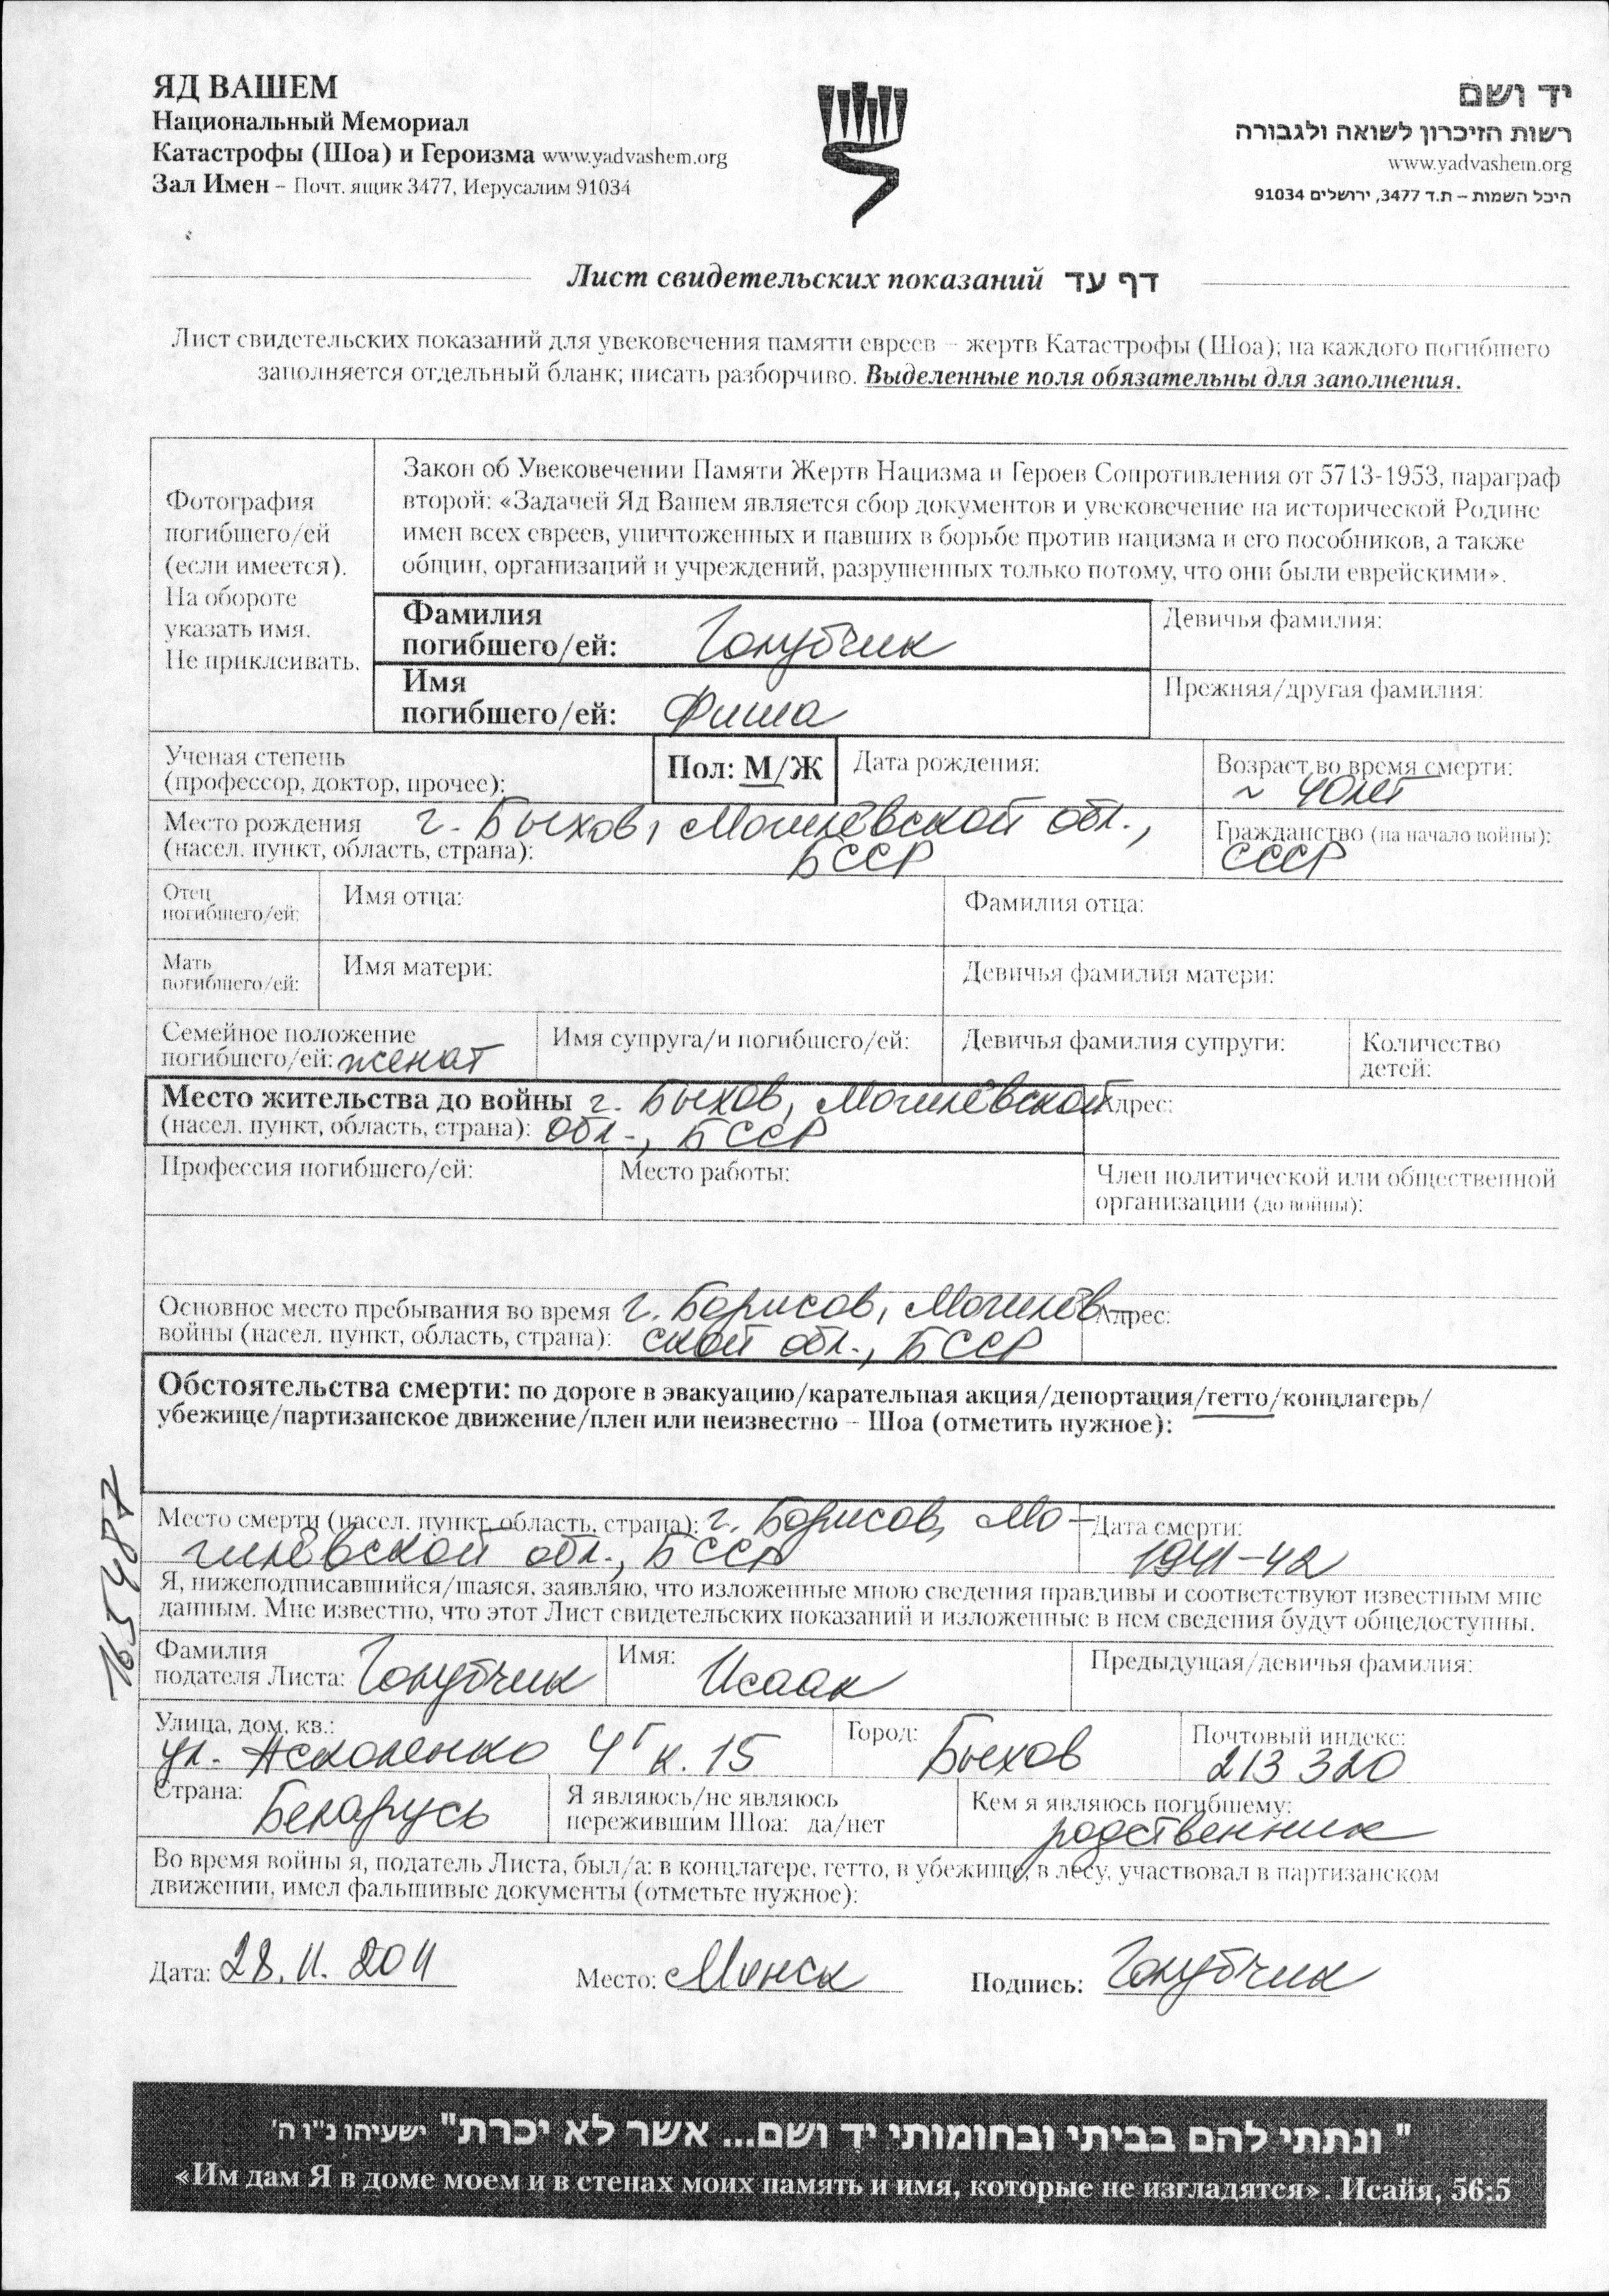 ЯД ВАШЕМ
Национальный Мемориал
Катастрофы (Шоа) и Героизма www.yadvashem.org
Зал Имен – Почт. ящик 3477, Иерусалим 91034
יד ושם
רשות הזיכרון לשואה ולגבורה
www.yadvashem.org
היכל השמות – ת.ד 3477, ירושלים 91034
Лист свидетельских показаний דף עד
Лист свидетельских показаний для увековечения памяти евреев – жертв Катастрофы (Шоа); на каждого погибшего
заполняется отдельный бланк; писать разборчиво. Выделенные поля обязательны для заполнения.
Фотография
погибшего/ей
(если имеется).
На обороте
указать имя.
Не приклеивать.
Закон об Увековечении Памяти Жертв Нацизма и Героев Сопротивления от 5713-1953, параграф
второй: «Задачей Яд Вашем является сбор документов и увековечение на исторической Родине
имен всех евреев, уничтоженных и павших в борьбе против нацизма и его пособников, а также
общин, организаций и учреждений, разрушенных только потому, что они были еврейскими».
Фамилия
погибшего/ей: Голубчик
Девичья фамилия:
Имя
погибшего/ей: Фиша
Прежняя/другая фамилия:
Ученая степень
(профессор, доктор, прочее):
Пол: М/Ж
Дата рождения:
Возраст во время смерти:
~ 40 лет
Место рождения г. Быхов, Могилёвской обл.,
(насел. пункт, область, страна): БССР
Гражданство (на начало войны):
СССР
Отец
погибшего/ей:
Имя отца:
Фамилия отца:
Мать
погибшего/ей:
Имя матери:
Девичья фамилия матери:
Семейное положение
погибшего/ей: женат
Имя супруга/и погибшего/ей:
Девичья фамилия супруги:
Количество
детей:
Место жительства до войны г. Быхов, Могилёвской
(насел. пункт, область, страна): обл., БССР
Адрес:
Профессия погибшего/ей:
Место работы:
Член политической или общественной
организации (до войны):
Основное место пребывания во время г. Борисов, Могилёв-
войны (насел. пункт, область, страна): ской обл., БССР
Адрес:
Обстоятельства смерти: по дороге в эвакуацию/карательная акция/депортация/гетто/концлагерь/
убежище/партизанское движение/плен или неизвестно – Шоа (отметить нужное):
Место смерти (насел. пункт, область, страна): г. Борисов, Мо-
гилёвской обл., БССР
Дата смерти:
1941-42
Я, нижеподписавшийся/шаяся, заявляю, что изложенные мною сведения правдивы и соответствуют известным мне
данным. Мне известно, что этот Лист свидетельских показаний и изложенные в нем сведения будут общедоступны.
Фамилия
подателя Листа: Голубчик
Имя: Исаак
Предыдущая/девичья фамилия:
Улица, дом, кв.:
ул. Асколенко 4г к. 15
Город: Быхов
Почтовый индекс:
213 320
Страна: Беларусь
Я являюсь/не являюсь
пережившим Шоа: да/нет
Кем я являюсь погибшему:
родственник
Во время войны я, податель Листа, был/а: в концлагере, гетто, в убежище, в лесу, участвовал в партизанском
движении, имел фальшивые документы (отметьте нужное):
Дата: 28.11.2011
Место: Минск
Подпись: Голубчик
" ונתתי להם בביתי ובחומותי יד ושם... אשר לא יכרת" ישעיהו נ"ו ה'
«Им дам Я в доме моем и в стенах моих память и имя, которые не изгладятся». Исайя, 56:5